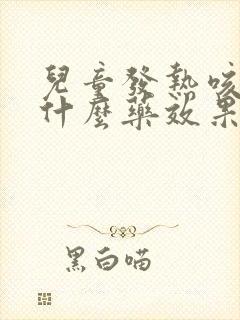 兒童發熱咳
什麼藥效果
黑白喵